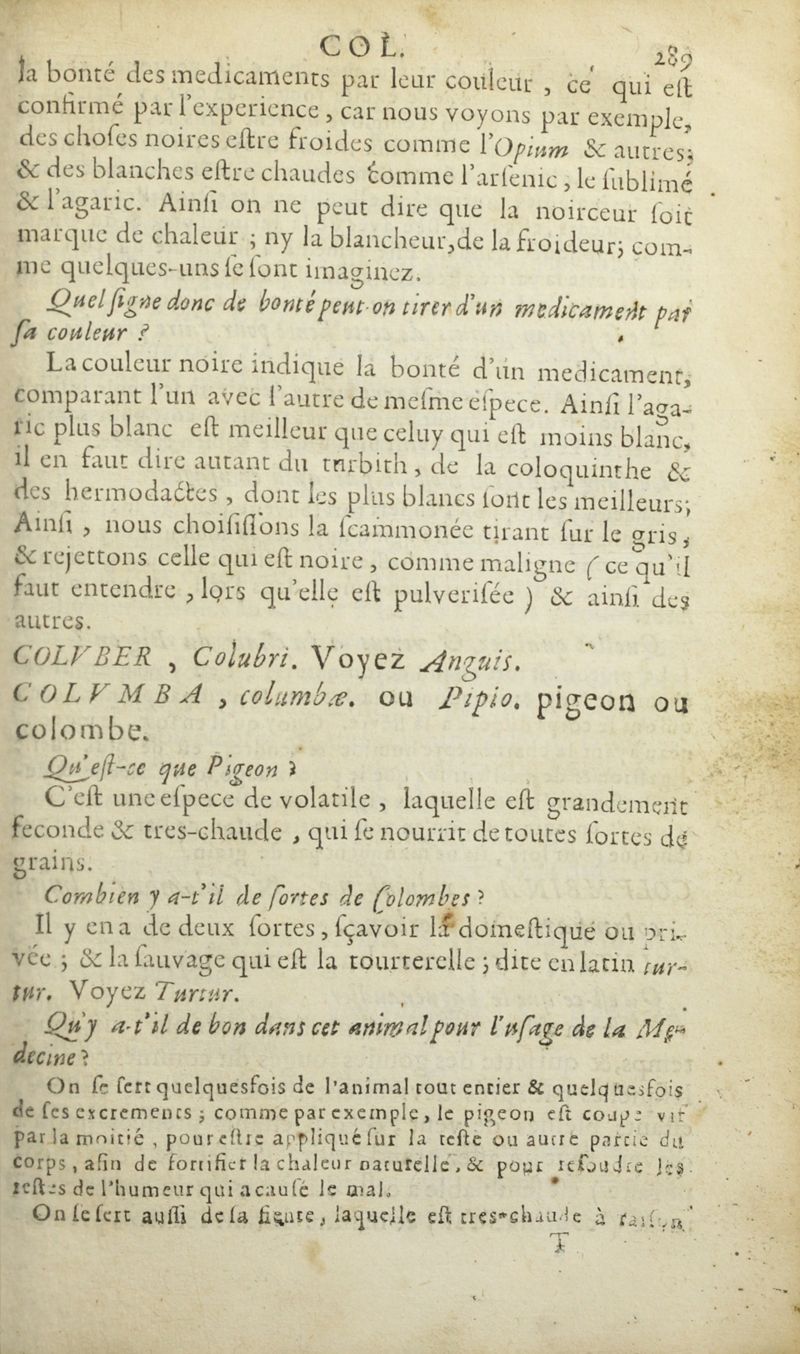 COL. 289
la bonté des medicaments par leur couleur , ce qui eſt
confirmé par l'experience , car nous voyons par exemple,
des choſes noires eſtre froides comme l'Opium & autres;
& des blanches eſtre chaudes comme l'arſenic , le ſublimé
& l'agaric. Ainſi on ne peut dire que la noirceur ſoit
marque de chaleur ; ny la blancheur,de la froideur; com-
me quelques-uns ſe ſont imaginez.
Quel ſigne donc de bonté peut-on tirer d'un medicament par
ſa couleur ?
La couleur noire indique la bonté d'un medicament,
comparant l'un avec l'autre de meſme eſpece. Ainſi l'aga-
ric plus blanc eſt meilleur que celuy qui eſt moins blanc,
il en faut dire autant du turbith , de la coloquinthe &
des hermodactes , dont les plus blancs ſont les meilleurs;
Ainſi , nous choiſiſſons la ſcammonée tirant ſur le gris ,
& rejettons celle qui eſt noire , comme maligne ( ce qu'il
faut entendre , lors qu'elle eſt pulveriſée ) & ainſi des
autres.
COLVBER , Colubri. Voyez Anguis.
COLVMBA , columbæ. ou Pipio. pigeon ou
colombe.
Qu'eſt-ce que Pigeon ?
C'eſt une eſpece de volatile , laquelle eſt grandement
feconde & tres-chaude , qui ſe nourrit de toutes ſortes de
grains.
Combien y a-t'il de ſortes de Colombes ?
Il y en a de deux ſortes , ſçavoir la domeſtique ou pri-
vée ; & la ſauvage qui eſt la tourterelle ; dite en latin tur-
tur. Voyez Turtur.
Qu'y a-t'il de bon dans cet animal pour l'uſage de la Me-
decine ?
On ſe ſert quelquesfois de l'animal tout entier & quelquesfois
de ſes excrements ; comme par exemple , le pigeon eſt coupé vif
par la moitié , pour eſtre appliqué ſur la teſte ou autre partie du
corps , afin de fortifier la chaleur naturelle , & pour reſoudre les
reſtes de l'humeur qui a cauſé le mal.
On ſe ſert auſſi de ſa fiente , laquelle eſt tres-chaude à raiſon
T